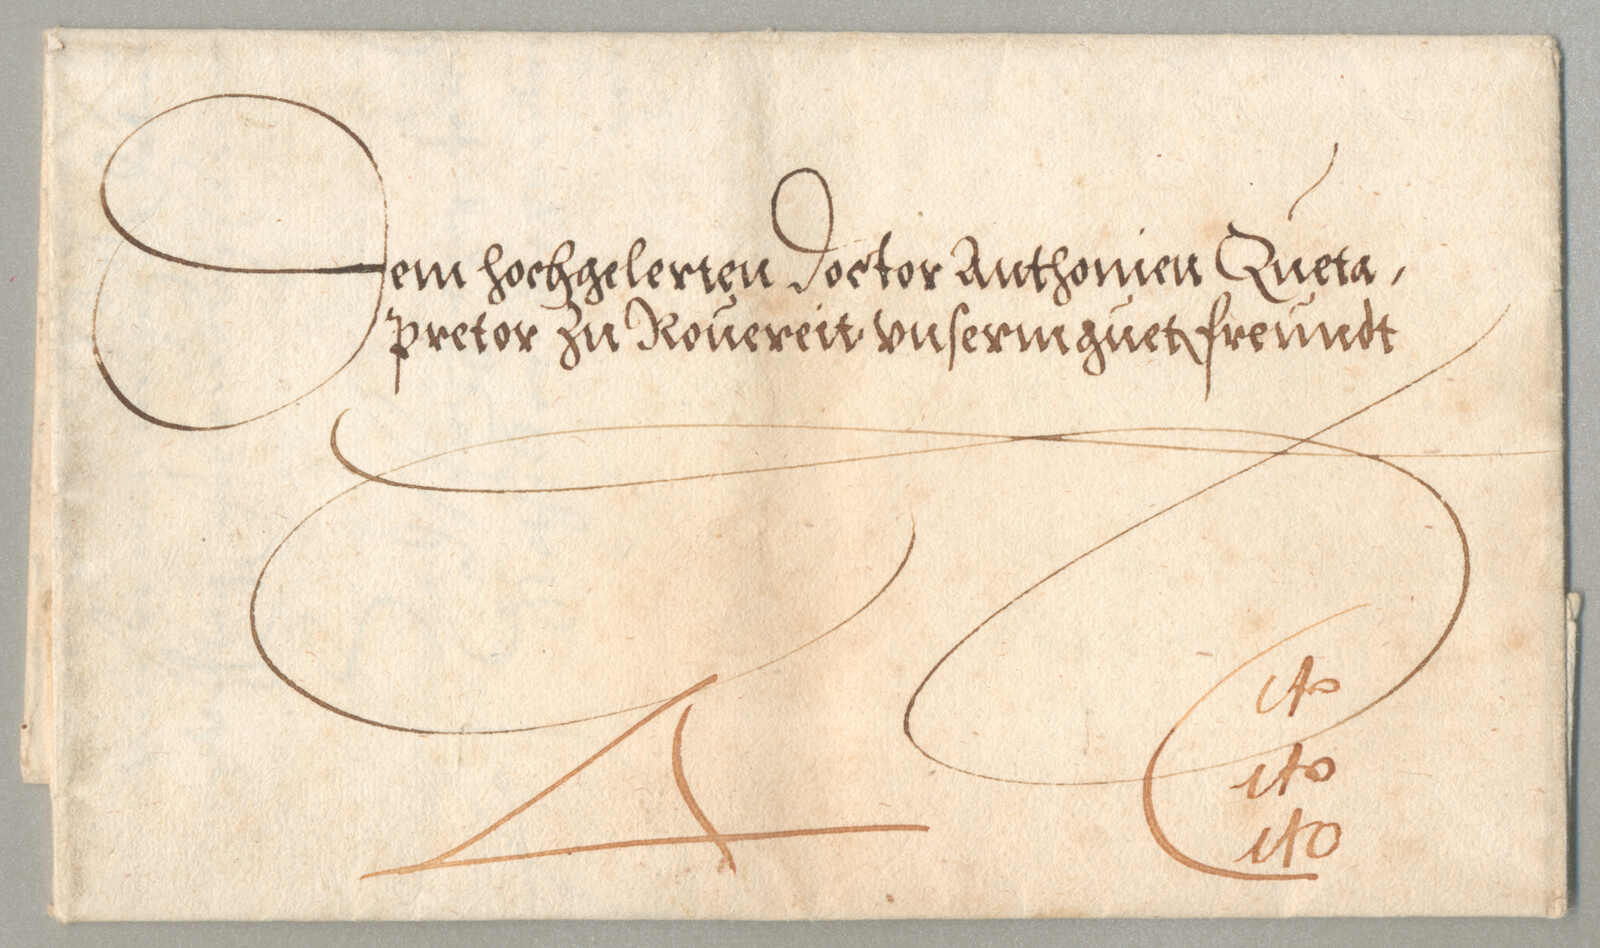 Dem hochgelerten Doctor Anthonien Queta,
pretor zu Rouereit, vnserm guetn freundt
Cito
cito
cito